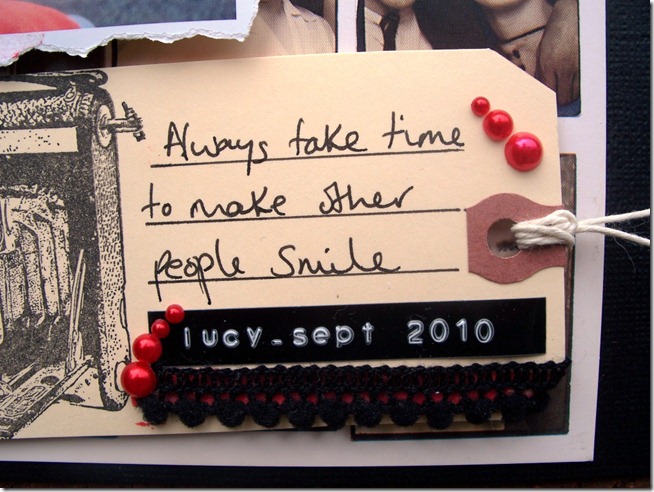 Always take time
to make other
people smile
lucy-sept 2010